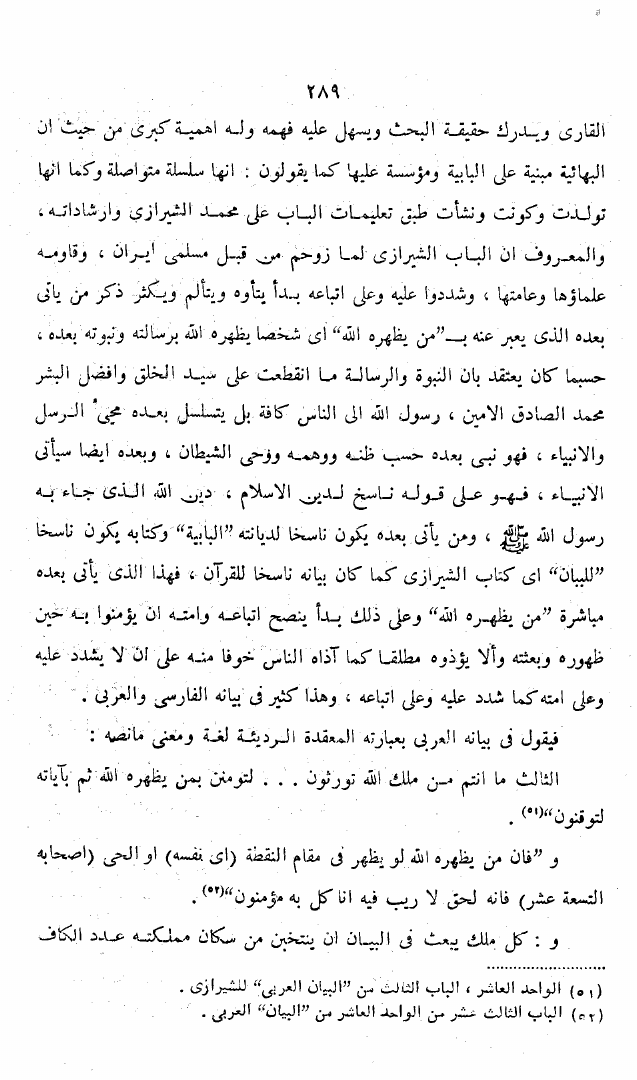 ٢٨٩
القارى ويدرك حقيقة البحث ويسهل عليه فهمه وله اهمية كبرى من حيث ان
البهائية مبنية على البابية ومؤسسة عليها كما يقولون : انها سلسلة متواصلة وكما انها
تولدت وكونت ونشأت طبق تعليمات الباب على محمد الشيرازي وارشاداته ،
والمعروف ان الباب الشيرازى لما زوحم من قبل مسلمى ايران ، وقاومه
علماؤها وعامتها ، وشددوا عليه وعلى اتباعه بدأ يتأوه ويتألم ويكثر ذكر من يأتى
بعده الذى يعبر عنه بـ”من يظهره الله“ اى شخصا يظهره الله برسالته ونبوته بعده ،
حسبما كان يعتقد بان النبوة والرسالة ما انقطعت على سيد الخلق وافضل البشر
محمد الصادق الامين ، رسول الله الى الناس كافة بل يتسلسل بعده مجئ الرسل
والانبياء ، فهو نبى بعده حسب ظنه ووهمه ووحى الشيطان ، وبعده ايضا سيأتى
الانبياء ، فهو على قوله ناسخ لدين الاسلام ، دين الله الذى جاء به
رسول الله ﷺ ، ومن يأتى بعده يكون ناسخا لديانته ”البابية“ وكتابه يكون ناسخا
”للبيان“ اى كتاب الشيرازى كما كان بيانه ناسخا للقرآن ، فهذا الذى يأتى بعده
مباشرة ”من يظهره الله“ وعلى ذلك بدأ ينصح اتباعه وامته ان يؤمنوا به حين
ظهوره وبعثته وألا يؤذوه مطلقا كما آذاه الناس خوفا منه على ان لا يشدد عليه
وعلى امته كما شدد عليه وعلى اتباعه ، وهذا كثير فى بيانه الفارسى والعربى .
فيقول فى بيانه العربى بعبارته المعقدة الرديئة لغة ومعنى مانصه :
الثالث ما انتم من ملك الله تورثون . . . لتومنن بمن يظهره الله ثم بآياته
لتوقنون“(٥١) .
و ”فان من يظهره الله لو يظهر فى مقام النقطة (اى نفسه) او الحى (اصحابه
التسعة عشر) فانه لحق لا ريب فيه انا كل به مؤمنون“(٥٢) .
و : كل ملك يبعث فى البيان ان ينتخبن من سكان مملكته عدد الكاف
(٥١) الواحد العاشر ، الباب الثالث من ”البيان العربى“ للشيرازى .
(٥٢) الباب الثالث عشر من الواحد العاشر من ”البيان“ العربى .